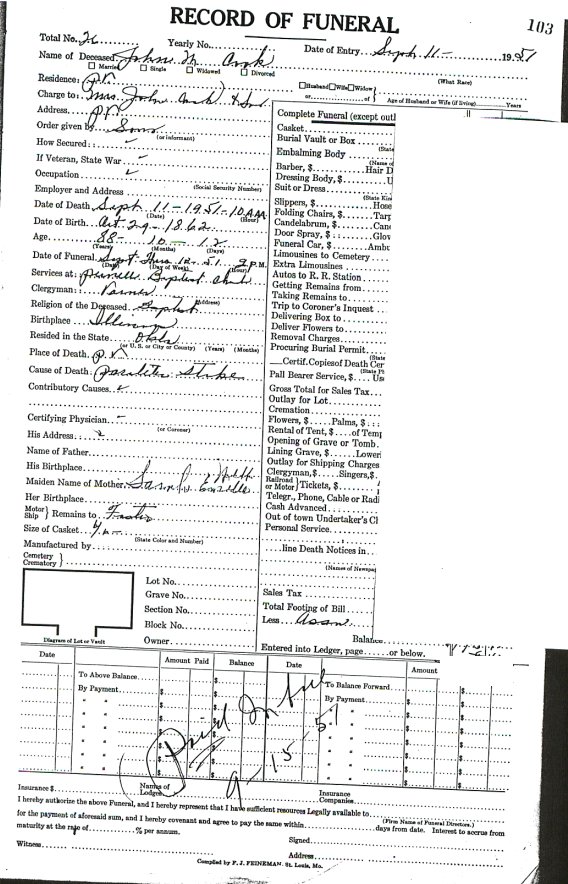 RECORD OF FUNERAL
103
Total No. Yearly No. Date of Entry Sept. 11 - 1951
Name of Deceased John
Married Single Widowed Divorced (What Race)
Residence: Husband Wife Widow of
Charge to: Mrs. John or of Age of Husband or Wife (if living) Years
Address
Order given by Sons
(or informant)
How Secured: -
If Veteran, State War -
Occupation
(Social Security Number)
Employer and Address
Date of Death Sept 11 - 1951 - 10 AM
(Date) (Hour)
Date of Birth Oct. 29 - 1862
Age 88 - 10 - 12
(Years) (Months) (Days)
Date of Funeral Sept 12 51 2 P.M.
(Date) (Day of Week) (Hour)
Services at: Purcell Baptist
Clergyman:
(Address)
Religion of the Deceased Baptist
Birthplace Illinois
Resided in the State Okla
(or U. S. or City or County) (Years) (Months)
Place of Death
Cause of Death: Stroke
Contributory Causes
Certifying Physician -
(or Coroner)
His Address
Name of Father
His Birthplace
Maiden Name of Mother Sarah
Her Birthplace
Motor Ship } Remains to
Size of Casket
(State Color and Number)
Manufactured by
Cemetery Crematory }
Lot No.
Grave No.
Section No.
Block No.
Owner
Diagram of Lot or Vault
Complete Funeral (except outl
Casket
Burial Vault or Box
(State
Embalming Body
(Name of
Barber, $ Hair D
Dressing Body, $ U
Suit or Dress
(State Kin
Slippers, $ Hose
Folding Chairs, $ Tarp
Candelabrum, $ Cand
Door Spray, $ Glov
Funeral Car, $ Ambu
Limousines to Cemetery
Extra Limousines
Autos to R. R. Station
Getting Remains from
Taking Remains to
Trip to Coroner's Inquest
Delivering Box to
Deliver Flowers to
Removal Charges
Procuring Burial Permit
(State
Certif. Copies of Death Cer
Pall Bearer Service, $ Us
Gross Total for Sales Tax
Outlay for Lot
Cremation
Flowers, $ Palms, $
Rental of Tent, $ of Temp
Opening of Grave or Tomb
Lining Grave, $ Loweri
Outlay for Shipping Charges
Clergyman, $ Singers, $
Railroad or Motor } Tickets, $
Telegr., Phone, Cable or Radi
Cash Advanced
Out of town Undertaker's Cl
Personal Service
line Death Notices in
(Names of Newspap
Sales Tax
Total Footing of Bill
Less Assn.
Balance
Entered into Ledger, page or below.
Date Amount Paid Balance Date Amount
To Above Balance To Balance Forward
By Payment By Payment
Paid In full
9-15-51
Insurance $ Names of Lodges Insurance Companies
I hereby authorize the above Funeral, and I hereby represent that I have sufficient resources Legally available to
(Firm Name of Funeral Directors.)
for the payment of aforesaid sum, and I hereby covenant and agree to pay the same within days from date. Interest to accrue from
maturity at the rate of % per annum.
Signed
Witness Address
Compiled by F. J. FEINEMAN, St. Louis, Mo.